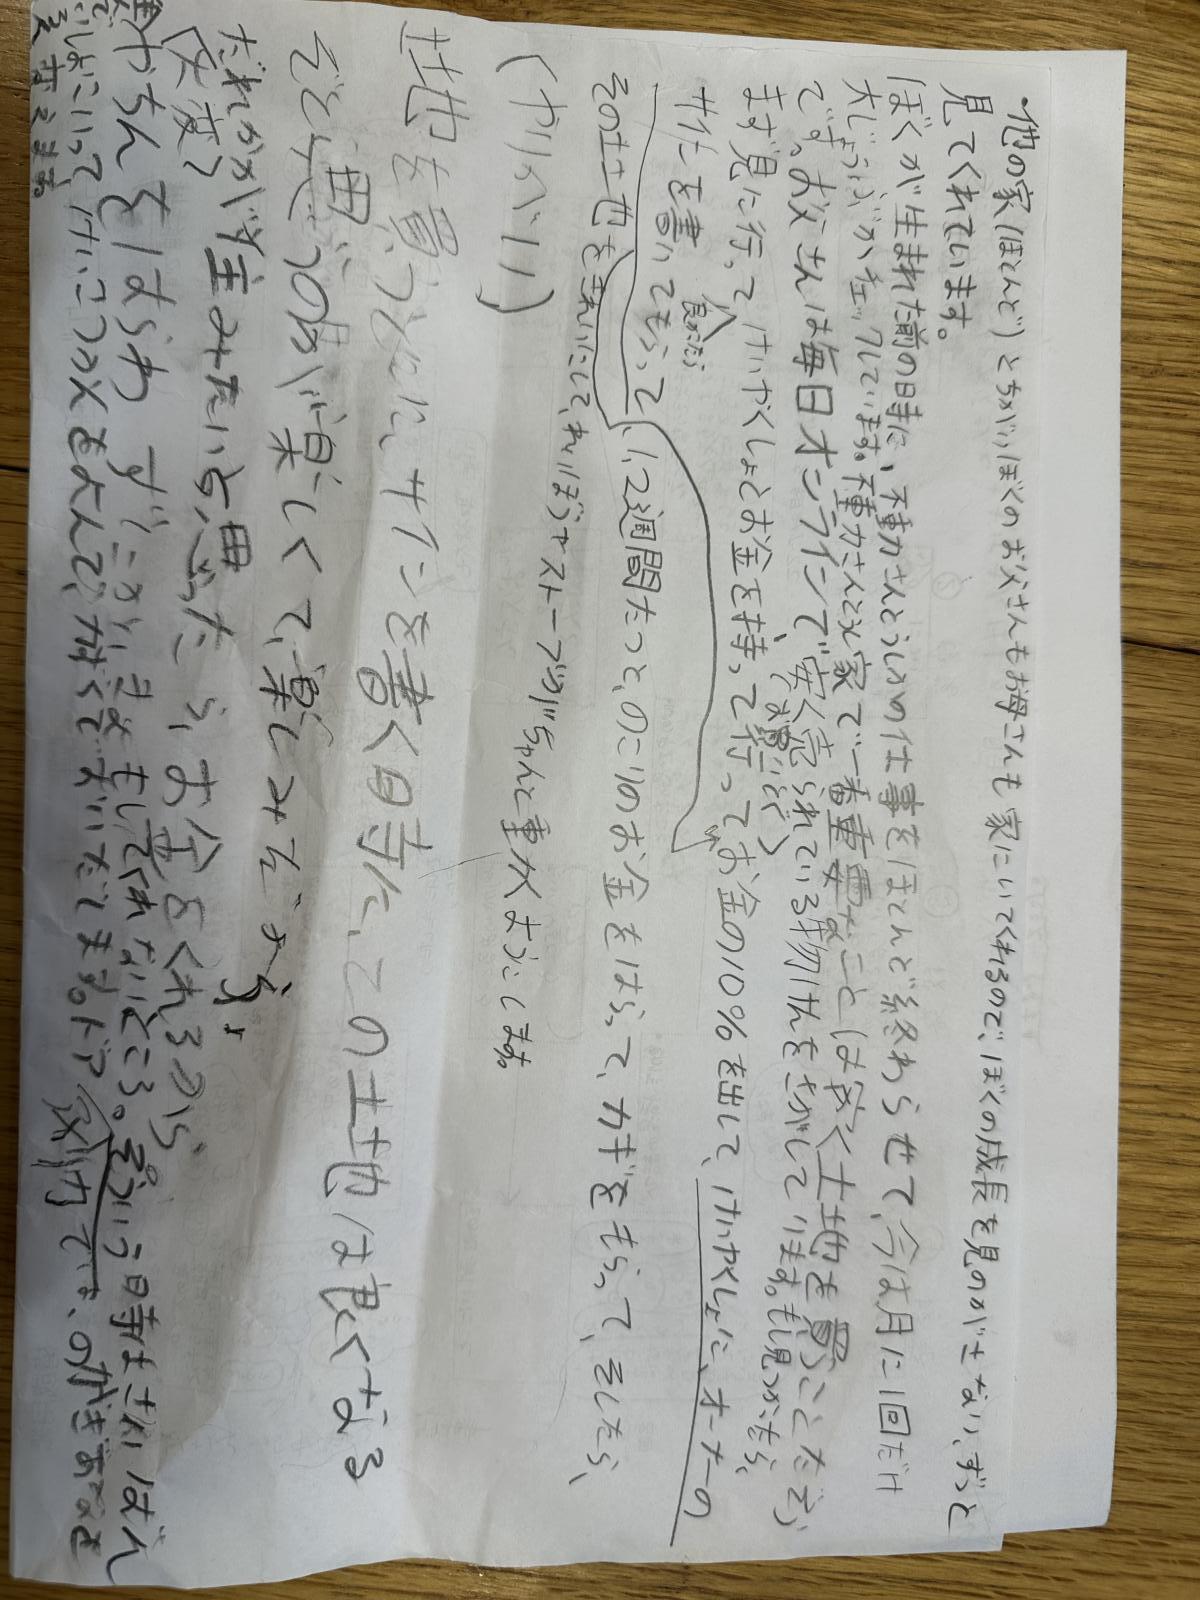 ・他の家(ほとんど)とちがいぼくのお父さんもお母さんも家にいてくれるので、ぼくの成長を見のがさない、ずっと
見てくれています。
ぼくが生まれた前の時に、不動力さんとうしの仕事をほとんど終わらせて、今は月に1回だけ
大じょうぶかチェックしています。不動力さんとは家で一番重要なことは安く土地を買うことだそう
です。お父さんは毎日オンラインで安く売られている物けんをさがしています。もし見つかったら、
(お買いどく)
まず見に行って、けいやくしょとお金を持って行ってお金の10%を出して、けいやくしょに、オーナーの
良かったら
サインを書いてもらって、1、2週間たつと、のこりのお金をはらって、カギをもらって、そしたら、
その土地をきれいにして、れいぼうやストーブがちゃんと重かくようにします。
(かいが11)
地を買う人に、サインを書く時に、この土地は良くなる
と思うのが楽しくて、楽しみだから、
だれかが住みたいと思ったら、お金をくれるから
(欠度)
やちんをはらわずにひがいよもしてくれないところ。そういう時はさいばん
いしょにいって、けいさつの人をよんで、かくでおいだします。ドア
のかぎあなを
강力です、